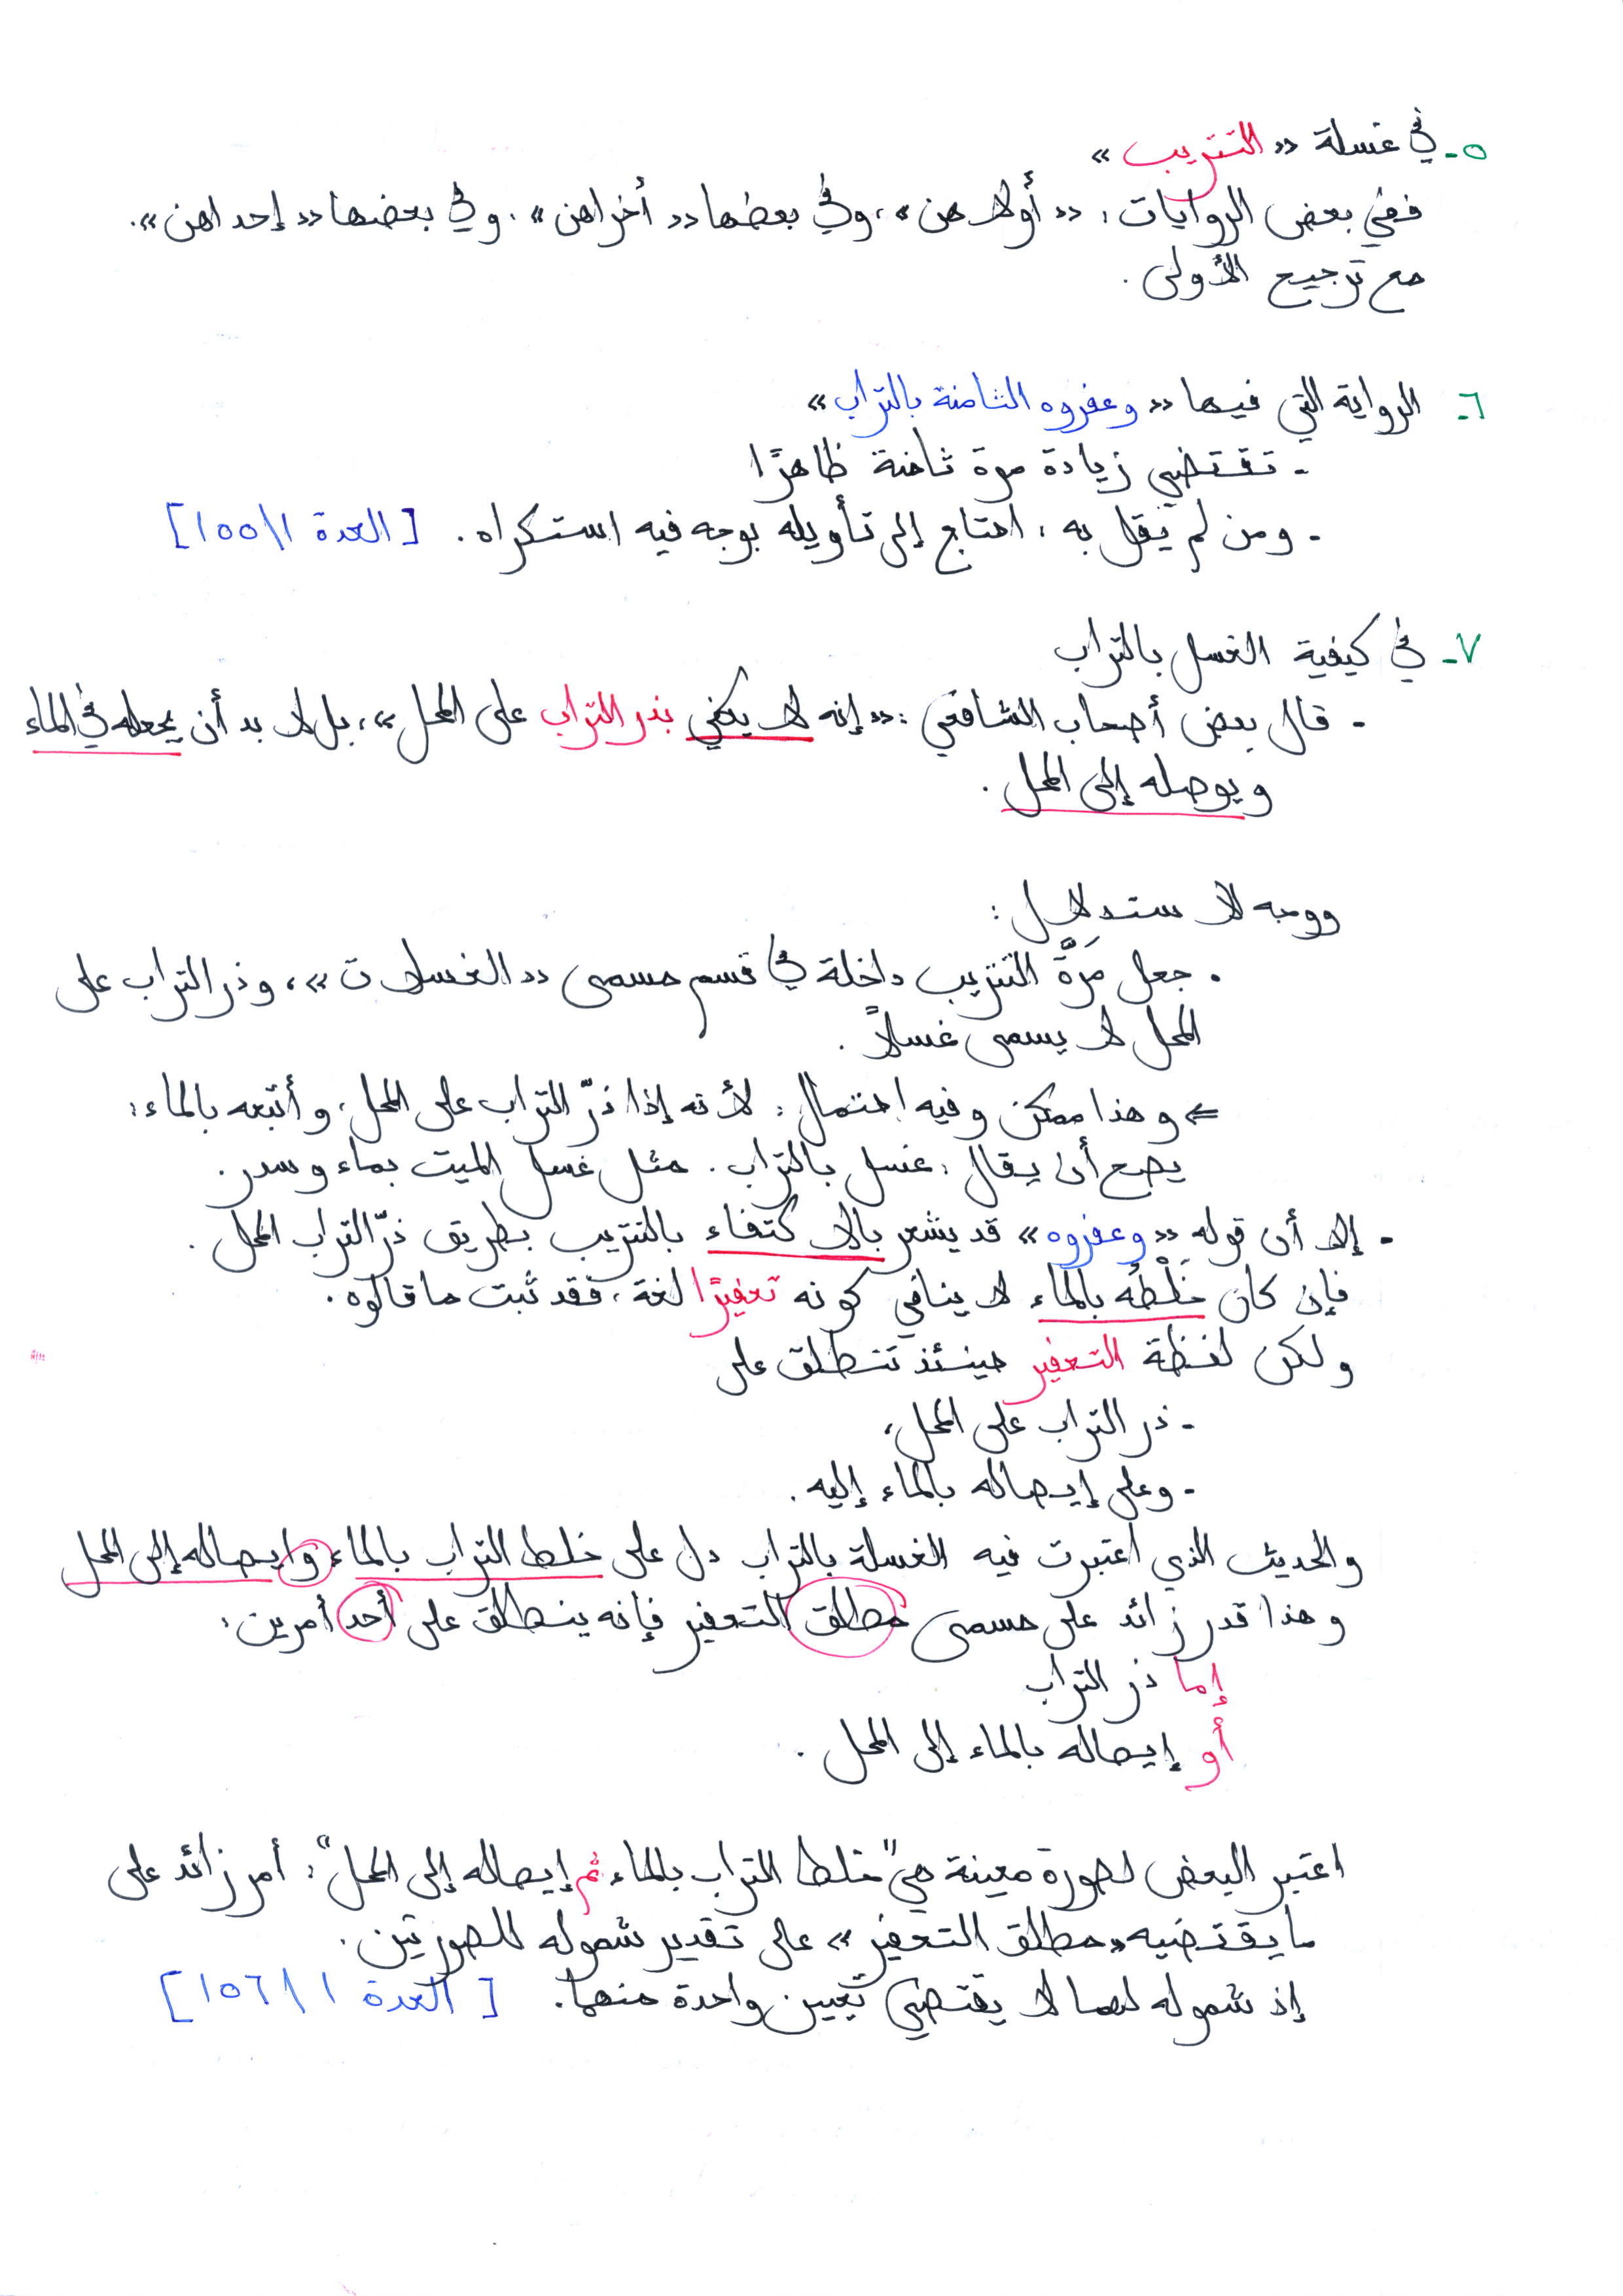 ٥- في غسلة « التتريب »
ففي بعض الروايات : « أولاهن »، وفي بعضها « أخراهن » . وفي بعضها « إحداهن ».
مع ترجيح الأولى .
٦- الرواية التي فيها « وعفروه الثامنة بالتراب »
- تقتضي زيادة مرة ثامنة ظاهرًا
- ومن لم يقل به ، احتاج إلى تأويله بوجه فيه استكراه . [ العدة ١\١٥٥ ]
٧- في كيفية الغسل بالتراب
- قال بعض أصحاب الشافعي : « إنه لا يكفي بذر التراب على المحل »، بل لا بد أن يجعله في الماء
ويوصله إلى المحل .
ووجه الاستدلال :
. جعل مَرَّة التتريب داخلة في قسم مسمى « الغسلات »، وذر التراب على
المحل لا يسمى غسلاً .
⇐ وهذا ممكن وفيه احتمال : لأنه إذا ذرّ التراب على المحل ، وأتبعه بالماء :
يصح أن يقال : غسل بالتراب . مثل غسل الميت بماء وسدر .
- إلا أن قوله « وعفروه » قد يشعر بالاكتفاء بالتتريب بطريق ذرّ التراب المحل .
فإن كان خَلْطُه بالماء لا ينافي كونه تعفيرًا لغة ، فقد ثبت ما قالوه .
ولكن لفظة التعفير حينئذ تنطلق على
- ذر التراب على المحل ،
- وعلى إيصاله بالماء إليه .
والحديث الذي اعتبرت فيه الغسلة بالتراب دل على خلط التراب بالماء وإيصاله إلى المحل
وهذا قدر زائد على مسمى مطلق التعفير فإنه ينطلق على أحد أمرين :
إما ذر التراب
أو إيصاله بالماء إلى المحل .
اعتبر البعض لصورة معينة هي "خلط التراب بالماء ثم إيصاله إلى المحل" : أمر زائد على
ما يقتضيه « مطلق التعفير » على تقدير شموله للصورتين .
إذ شموله لهما لا يقتضي تعيين واحدة منهما . [ العدة ١\١٥٦ ]